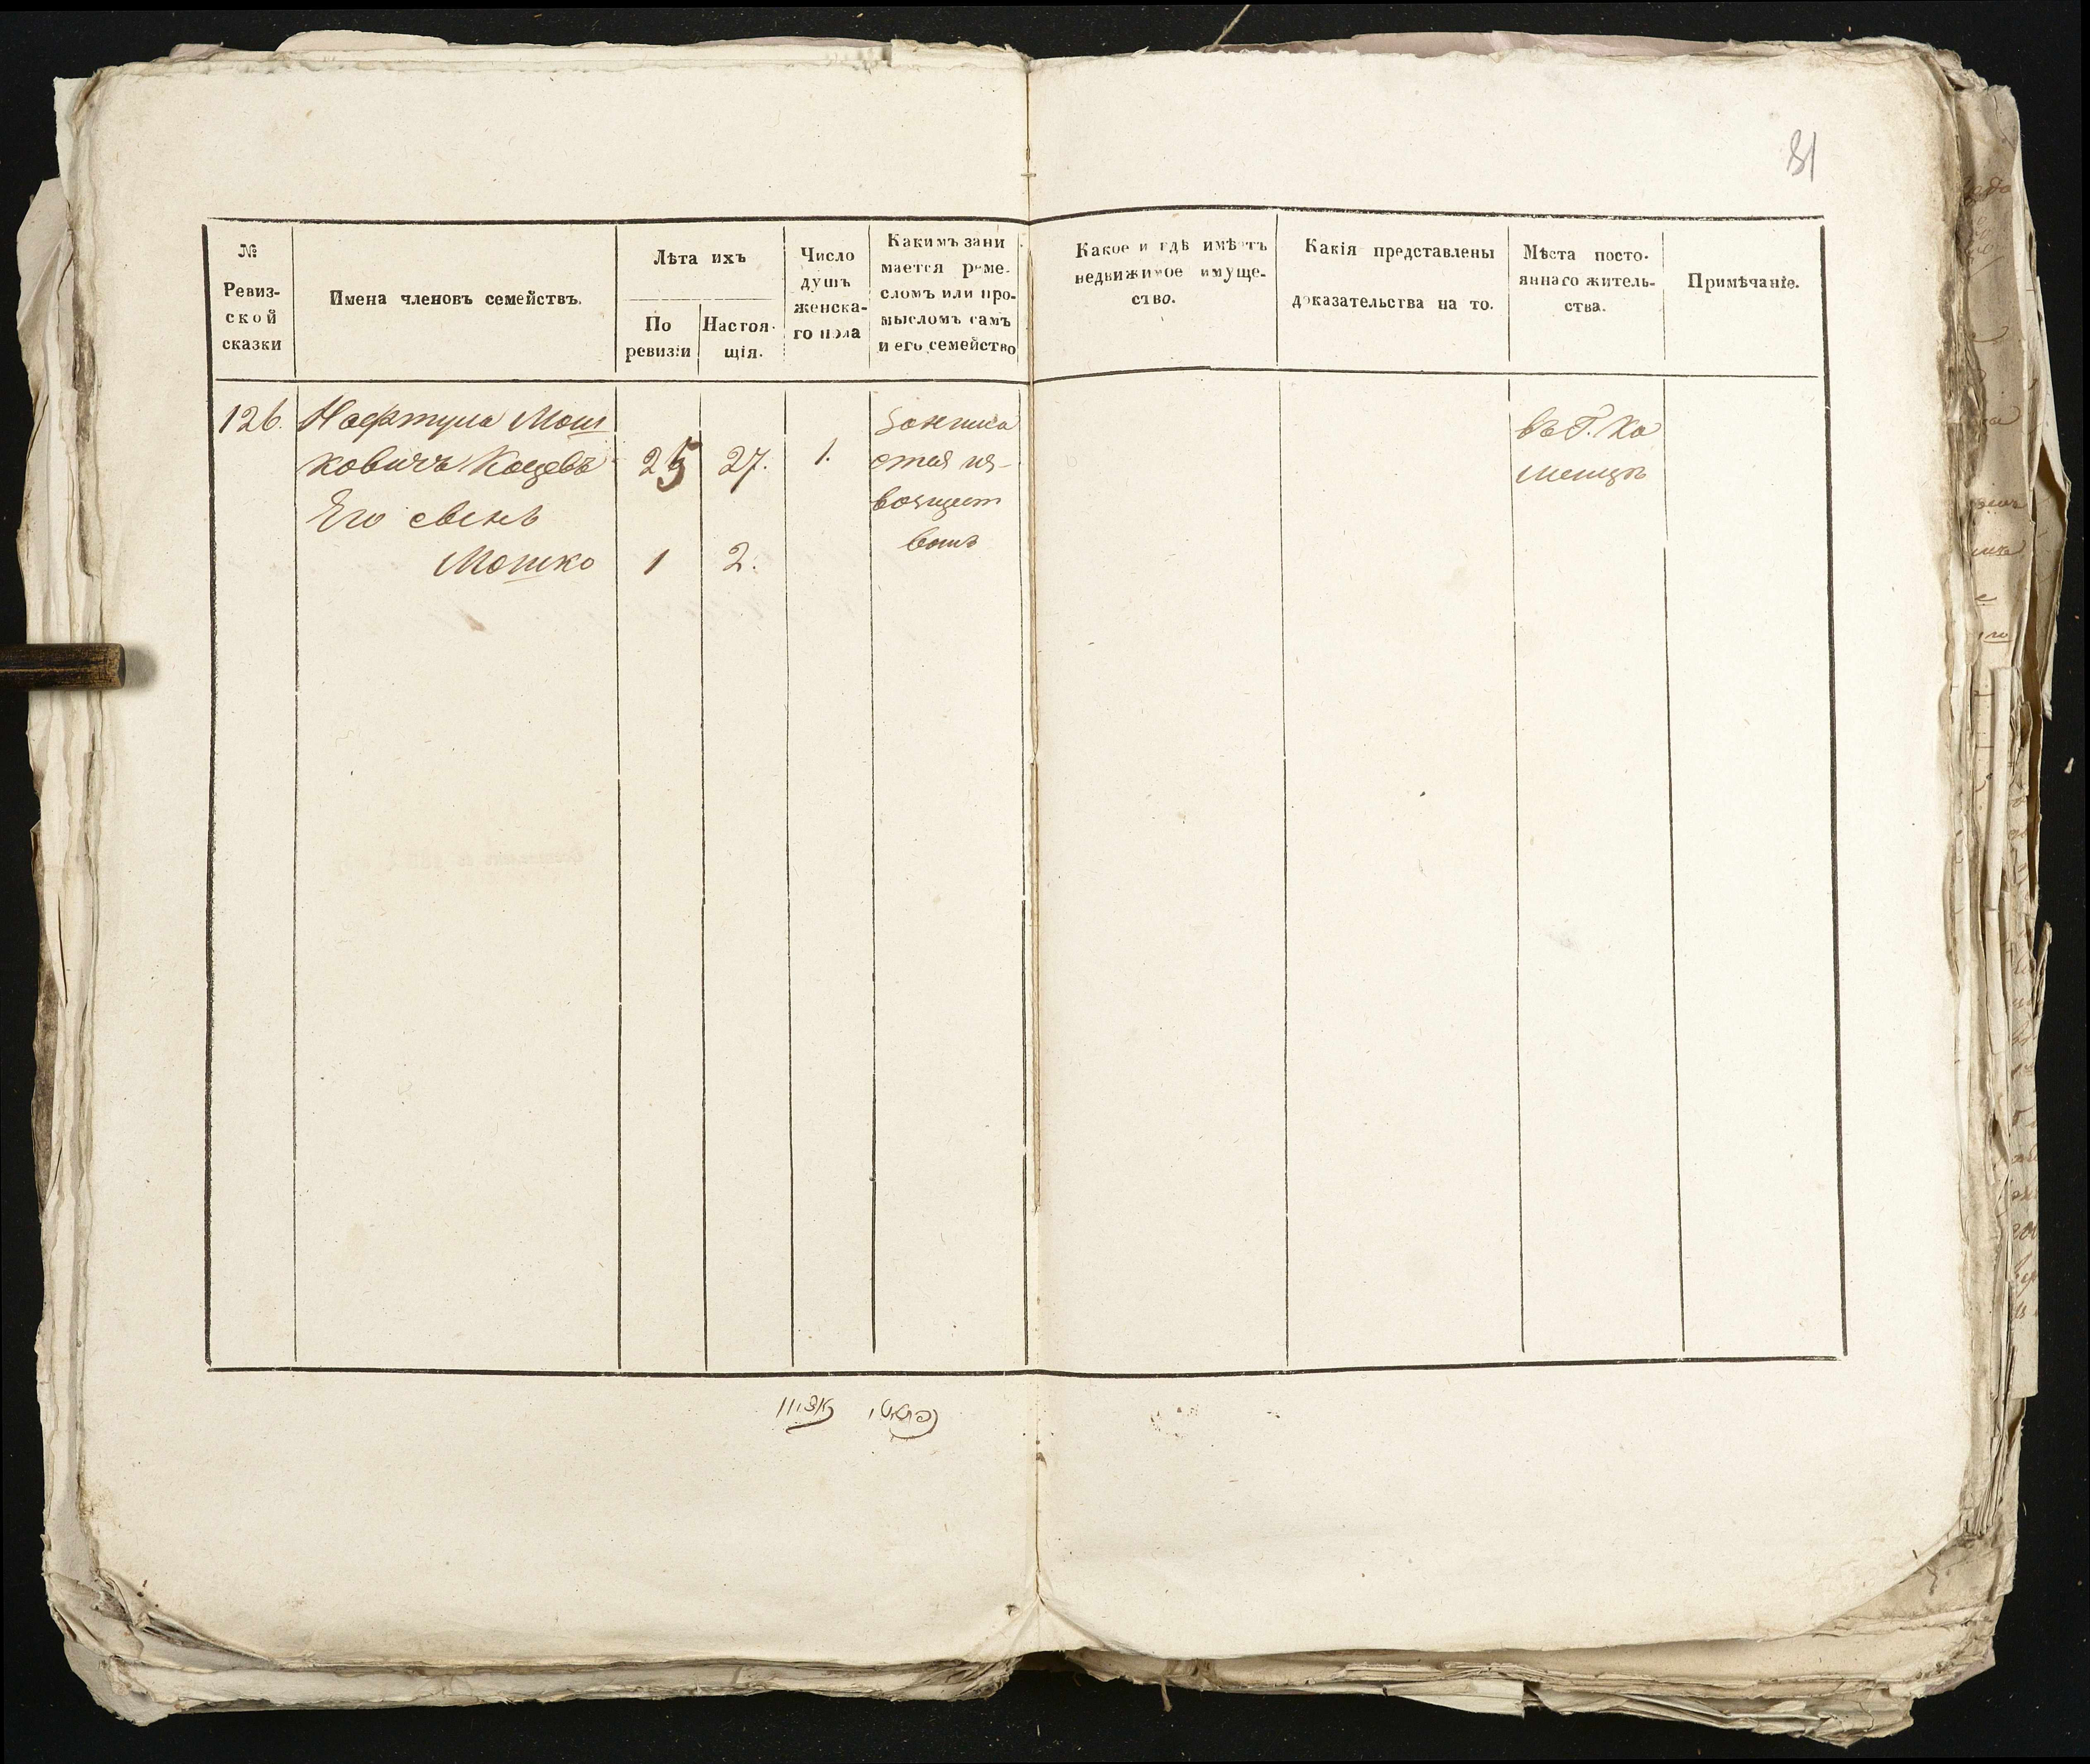 81
№
Ревиз-
ской
сказки
Имена членовъ семействъ.
Лѣта ихъ
По
ревизіи
Настоя-
щія.
Число
душъ
женска-
го пола
Какимъ зани
мается реме-
сломъ или про-
мысломъ самъ
и его семейство
Какое и гдѣ имѣетъ
недвижимое имуще-
ство.
Какія представлены
доказательства на то.
Мѣста посто-
яннаго житель-
ства.
Примѣчаніе.
126.
Нафтула Мош
ковичъ Кацевъ
25
27.
1.
Его свинъ
Мошко
1
2.
Занима
ется из-
возщест
вомъ
въ Г. Ка
менцѣ